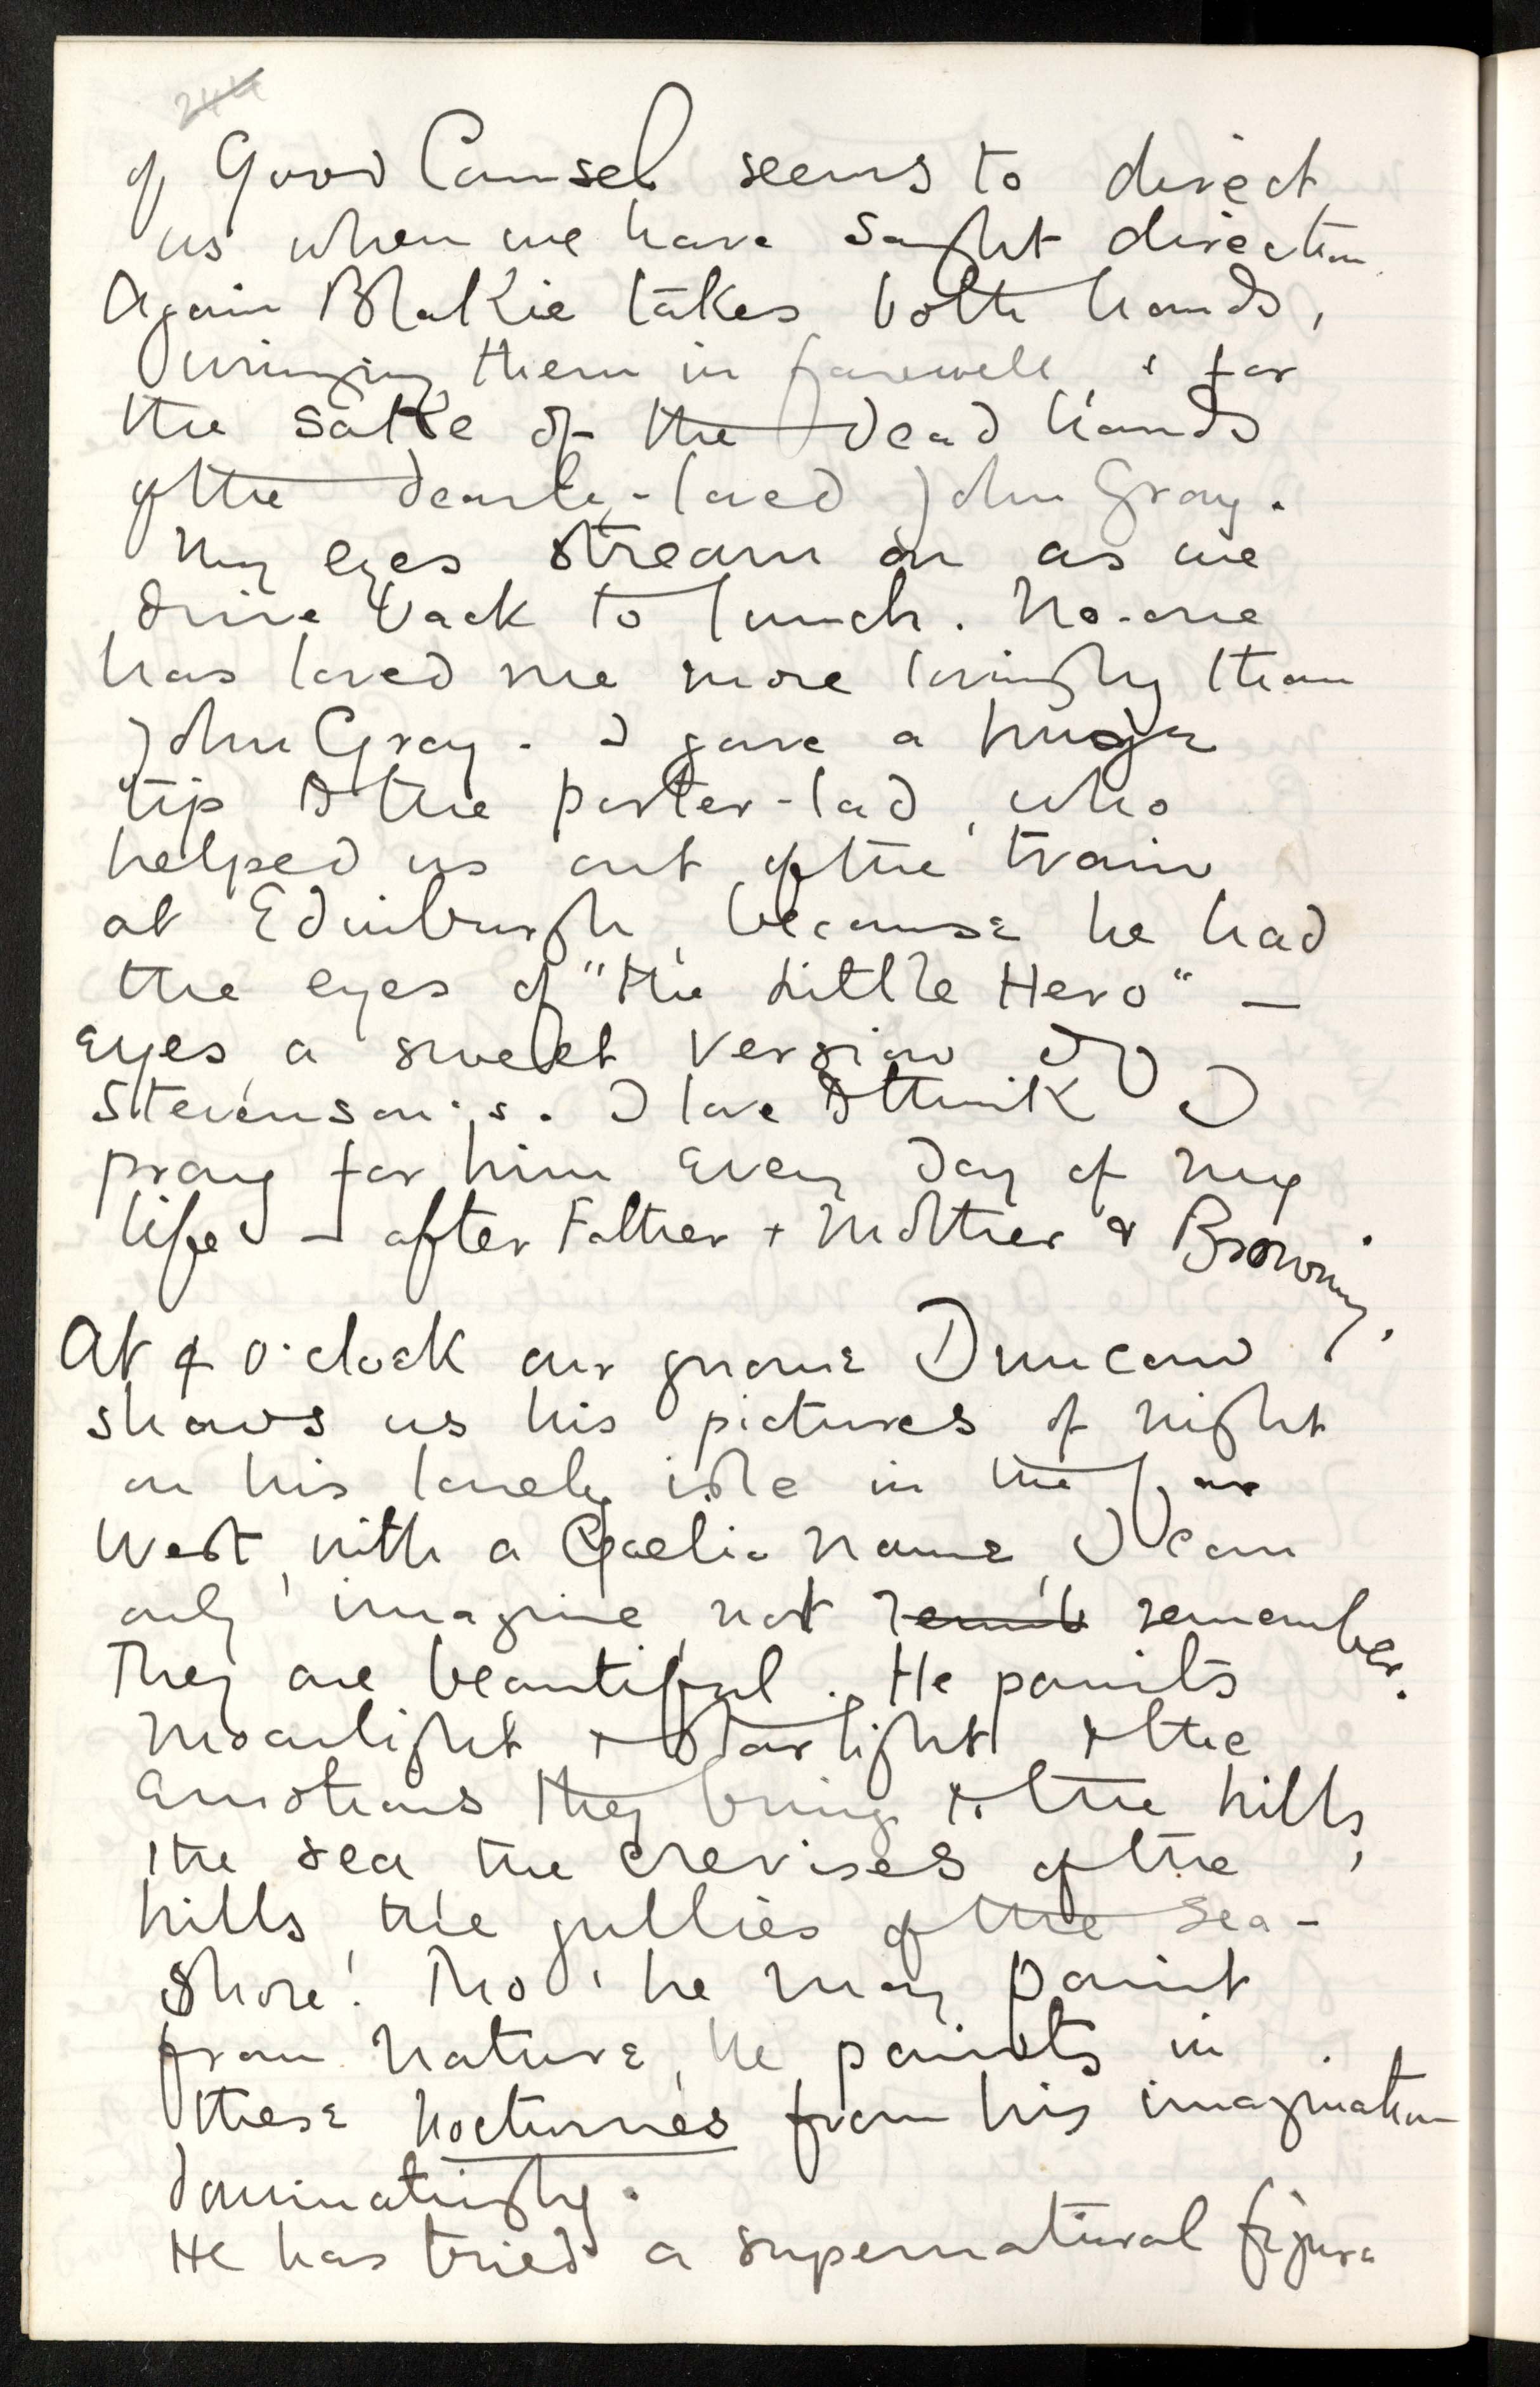 244
of Good Counsel seems to direct
us when we have sought direction.
Again Blakie takes both hands,
wringing them in farewell, & for
the sake of the dead hands
of the dearly-loved John Gray.
My eyes stream on as we
drive back to lunch. No-one
has loved me more lovingly than
John Gray. I gave a huge
tip to the porter-lad, who
helped us out of the train
at Edinburgh, because he had
the eyes of "the Little Hero" —
eyes, a sweet version of
Stevenson's. I love to think I
pray for him every day of my
life — after Father + Mother & Browning.
At 4 o'clock our gnome Duncan
shows us his pictures of night
on his lonely isle in the far
West, with a Gaelic name, I can
only imagine not rememb remember.
They are beautiful. He paints
moonlight + starlight & the
emotions they bring to the hills,
the sea the crevises of the
hills the gullies of the sea-
shore! Tho' he may paint
from nature, he paints in
these nocturnes from his imagination
dominatingly.
He has tried a supernatural figure